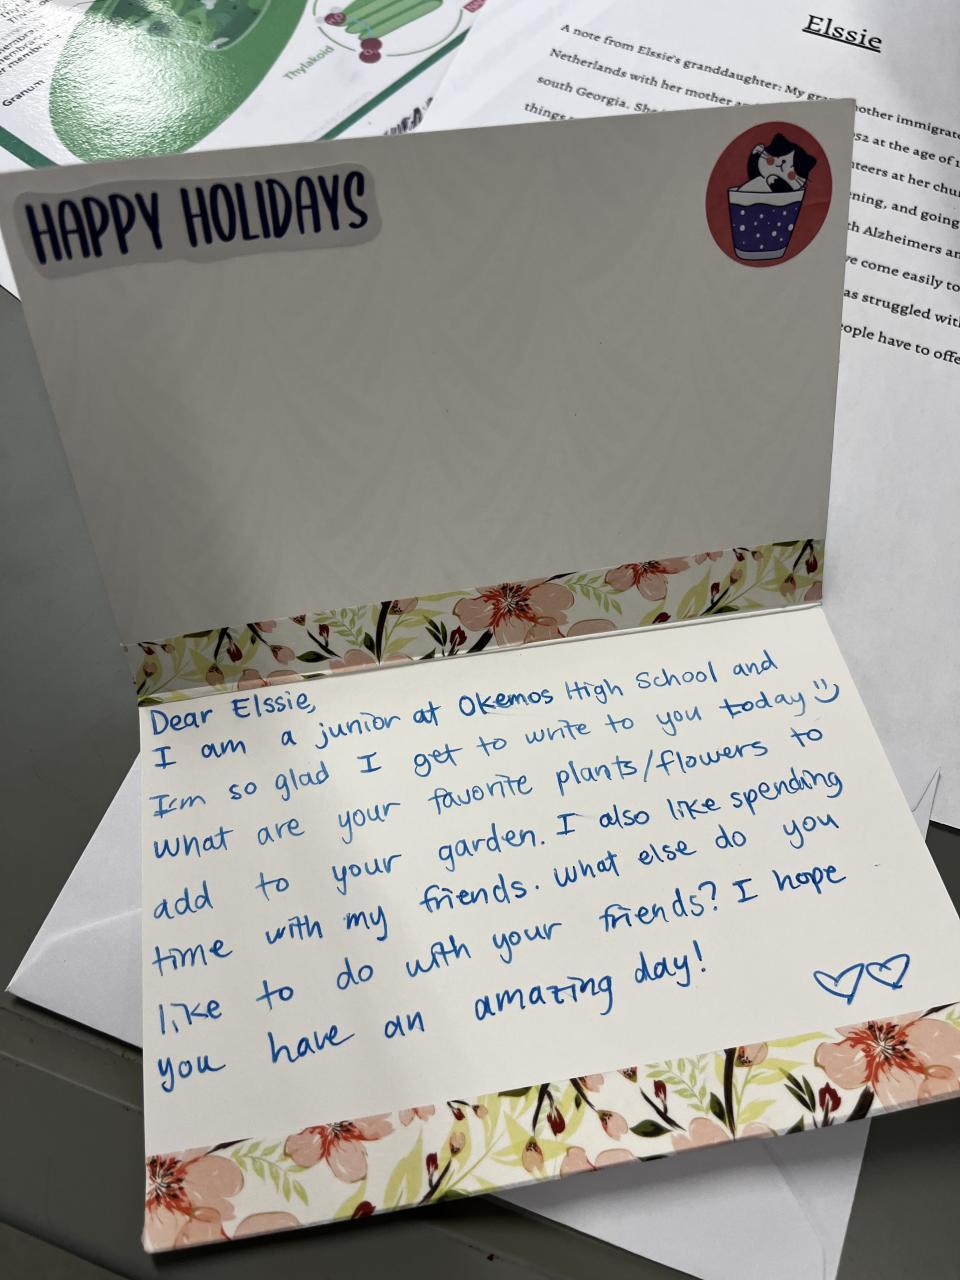 Thylakoid
Granum
Elssie
A note from Elssie's granddaughter: My
immigrate
Netherlands with her mother
south Georgia.
52 at the age of
things
at her chu
and going
Alzheimers an
come easily to
as struggled with
have to offe
HAPPY HOLIDAYS
Dear Elssie,
I am a junior at Okemos High School and
I'm so glad I get to write to you today :)
What are your favorite plants/flowers to
add to your garden. I also like spending
time with my friends. What else do you
like to do with your friends? I hope
you have an amazing day!